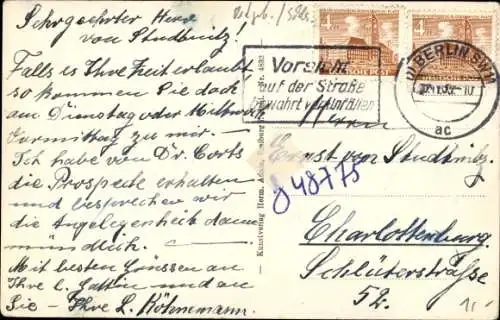 Sehrgeehrter Herr
von Studbnitz!
Falls es Ihre Zeit erlaubt,
so kommen Sie doch
am Dienstag oder Mittwoch
Vormittag zu mir. —
Ich habe von Dr. Corts
die Prospekte erhalten
und besprechen wir
die Angelegenheit dann
mündlich. —
Mit besten Grüssen an
Ihre l. Gattin und an
Sie – Ihre L. Köhnemann.
— Kunstverlag Herm.
4
4
DEUTSCHE POST
BERLIN SW11
ac
Vorsicht
auf der Straße
bewahrt vor Unfällen
Herrn
Ernst von Studbnitz
J 48775
Charlottenburg
Schlüterstraße
52.